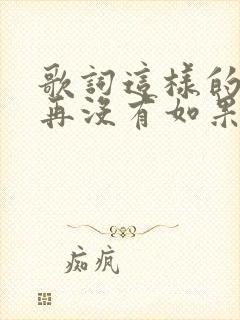 歌詞這樣的
再沒有如果
痴疯